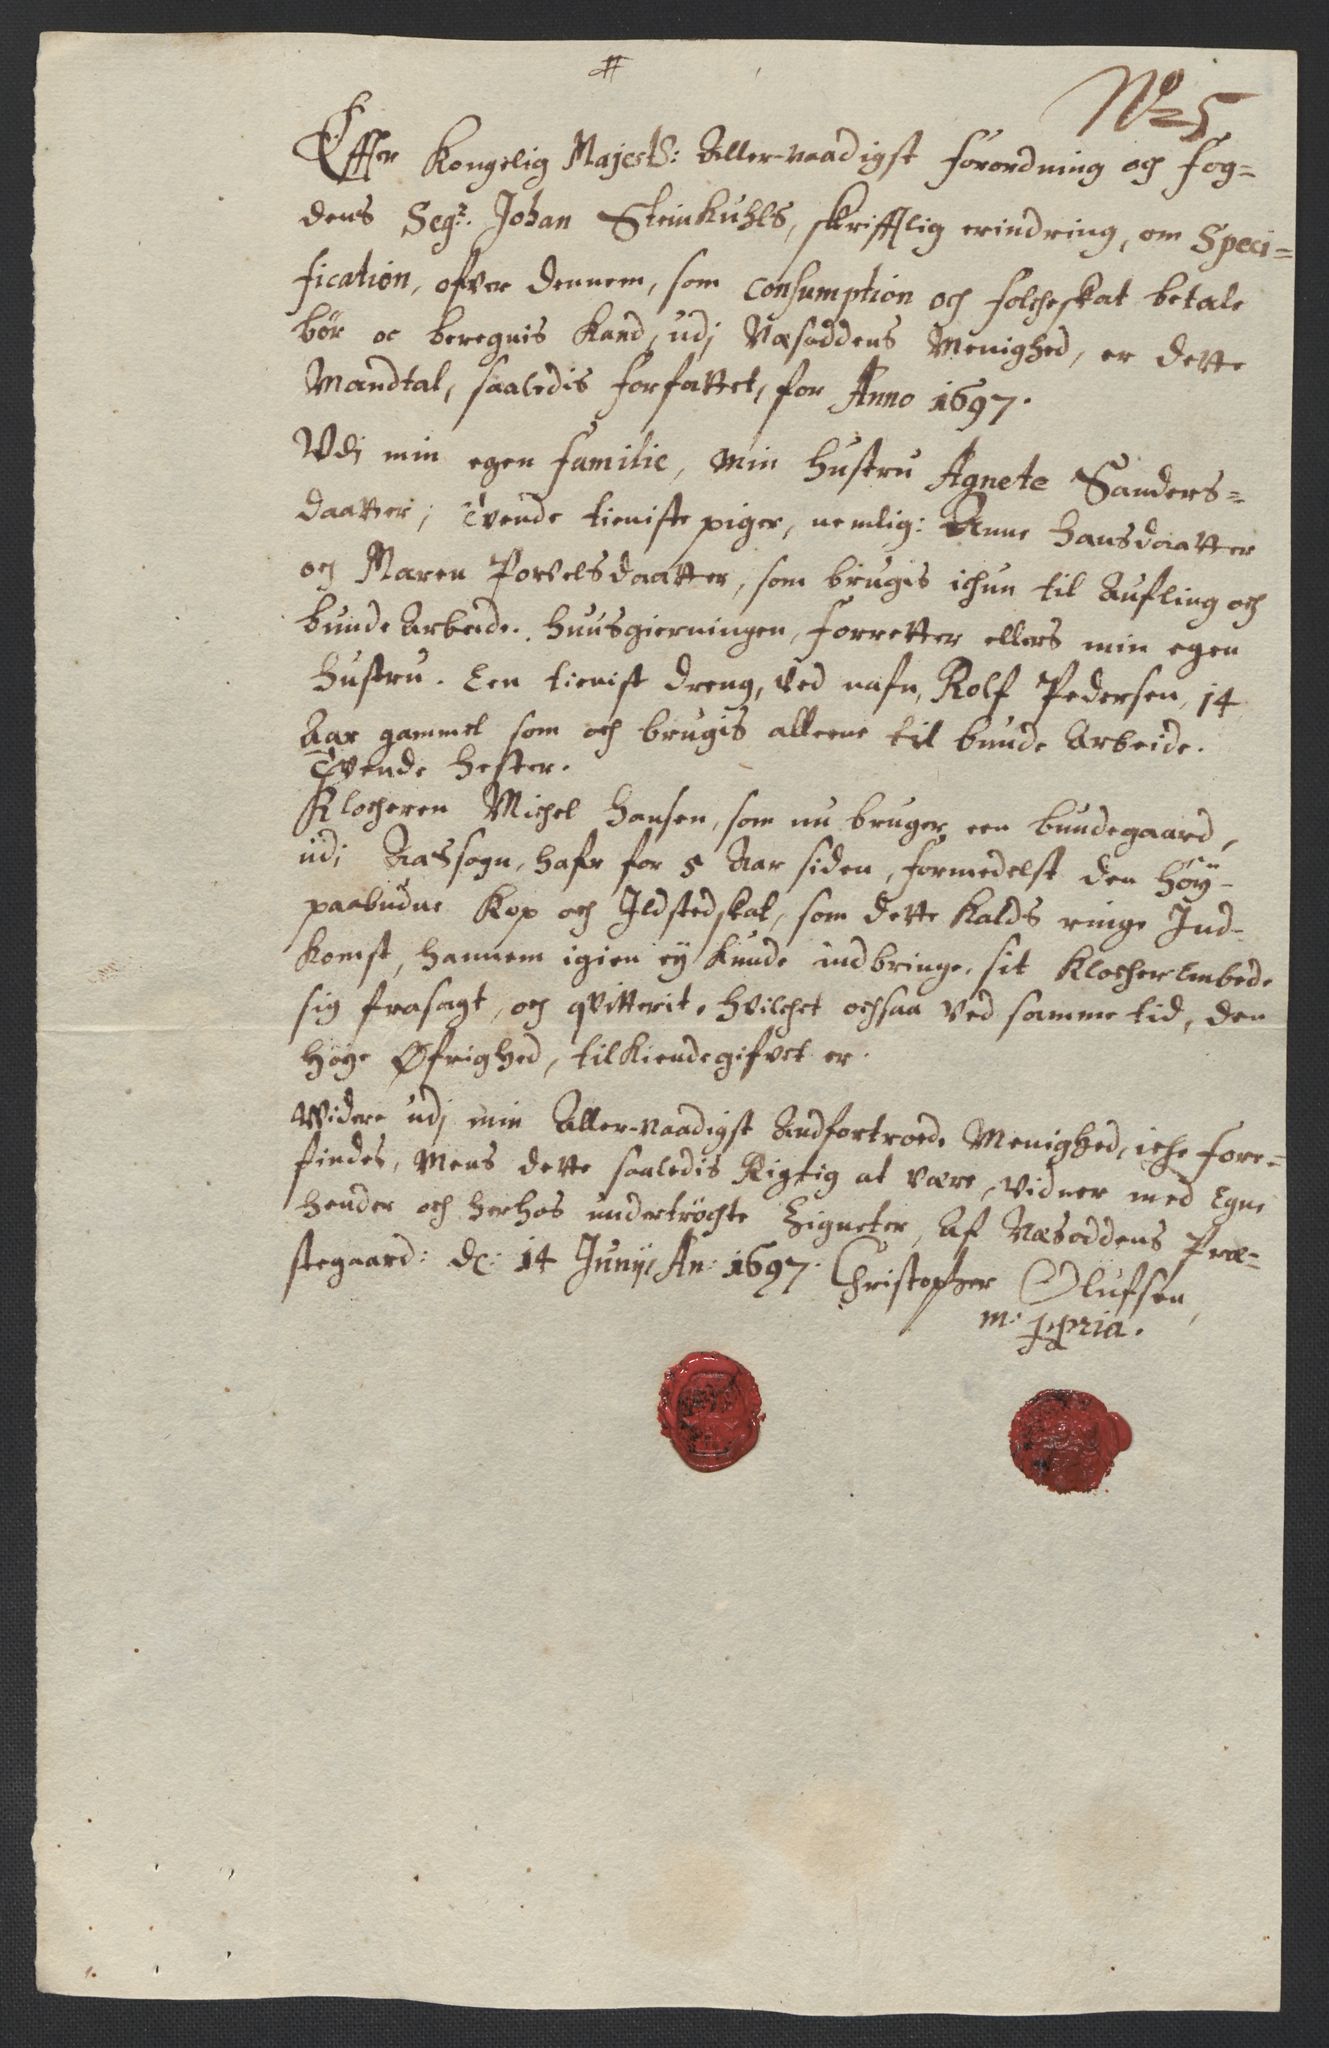 No 5
Effter Kongelig Majestß: Aller-naadigst forordning och fog=
dens Segr. Johan Steinkuhls, skrifftlig erindring, om Speci=
fication, ofver dennem, som Consumption och folcheskat betale
bör oc beregnis kand, udj Næsoddens Menighed, er dette
Mandtal, saaledis forfattet, for Anno 1697.
Udj min egen familie, Min Hustru Agnete Sanders=
daatter, Tvende tieniste piger, nemlig: Anne Hansdaatter
och Maren Povelsdaatter, som brugis ichun til Aufling och
bunde Arbeide. Huusgierningen, forretter ellers min egen
Hustru. Een tienist dreng, ved nafn, Rolf Pedersen, 14
Aar gammel som och brugis alleene til bunde Arbeide.
Tvende Hester.
Klocheren Michel Hansen, som nu bruger een bundegaard,
udi Aassogn, hafr for 5 Aar siden, formedelst den Höy-
paabudne Kop och Ildstedskat, som dette Kalds ringe Ind-
komst, hannem igien ey kunde indbringe, sit Klocher Embede
sig frasagt, och qvitterit, hvilchet ochsaa ved samme tid, den
Höye Øfrighed, tilkiendegifvet er.
Widere udj min Aller-naadigst Andfortroede Menighed, iche fore=
findes, Mens dette saaledis Rigtig at være, vidner med Egne
hender och herhos undertröchte Zigneter, Af Næsoddens Præ=
stegaard: dc: 14 Junij An: 1697. Christopher Olufsen
m: ppria.